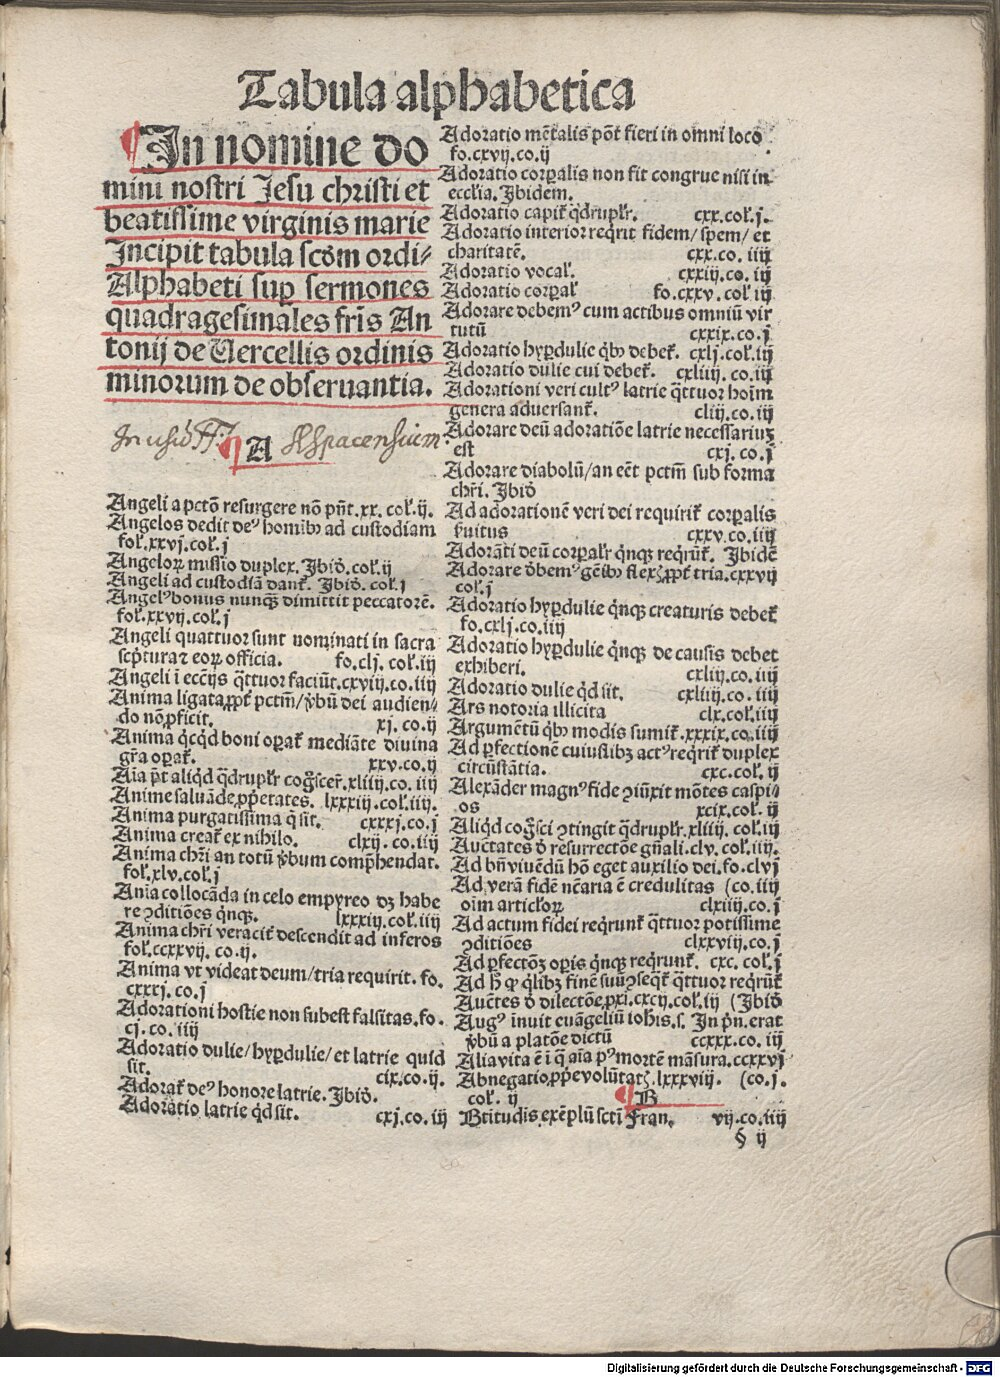 Tabula alphabetica
In nomine do
mini nostri Jesu christi et
beatissime virginis marie
Incipit tabula scđm ordi-
Alphabeti suꝑ sermones
quadragesimales fris̄ An
tonij de Uercellis ordinis
minorum de obseruantia.
In usū FF.
A
Angeli a pctō resurgere nō pn̄t. xx. col̄. ij.
Angelos dedit deꝰ homibꝫ ad custodiam
fol̄. xxvj. col. j
Angeloꝝ missio duplex. Jbid̄. col̄. ij
Angeli ad custodiā dant̄. Jbid̄. col̄. j
Angelꝰ bonus nunqꝫ dimittit peccatorē.
fol̄. xxvij. col̄. j
Angeli quattuor sunt nominati in sacra
scp̄tura ⁊ eoꝝ officia. fo. clj. col̄. iij
Angeli ī ecc̄ijs q̄ttuor faciūt. cxviij. co. iiij
Anima ligata ꝓpt̄ pctm̄/ v̄bū dei audien/
do nō ꝓficit. xj. co. ij
Anima qcqd boni oꝑat̄ mediāte diuina
gr̄a oꝑat̄. xxv. co. ij
Aīa p̄t aliqd q̄druplr̄ coḡscer̄. xliiij. co. iij
Anime saluāde ꝓprietates. lxxxiij. col̄. iij.
Anima purgatissima q̄ sit. cxxxj. co. j
Anima creat̄ ex nihilo. clxij. co. iiij
Anima chr̄i an totū v̄bum comp̄hendat.
fol̄. xlv. col̄. j
Anīa collocāda in celo empyreo dꝫ habe
re ↄditiōes q̄nqꝫ. lxxxiij. col̄. iij
Anima chr̄i veracit̄ descendit ad inferos
fol̄. ccxxvij. co. ij.
Anima vt videat deum/ tria requirit. fo.
cxxxj. co. j
Adorationi hostie non subest falsitas. fo.
cj. co. iij
Adoratio dulie/ hyꝑdulie/ et latrie quid
sit. cix. co. ij.
Adorat̄ deꝰ honore latrie. Jbid̄.
Adoratio latrie qd sit. cxj. co. iij
Adoratio mētalis pōt fieri in omni loco
fo. cxvij. co. ij
Adoratio corꝑalis non fit congrue nisi in
ecclīa. Jbidem.
Adoratio capit̄ q̄druplr̄. cxx. col̄. j.
Adoratio interior req̄rit fidem/ spem/ et
charitatē. cxx. co. iiij
Adoratio vocal̄. cxxiij. co. ij
Adoratio corꝑal̄ fo. cxxv. col̄ iij
Adorare debemꝰ cum actibus omniū vir
tutū cxxix. co. j
Adoratio hyꝑdulie qbꝫ debet̄. cxlj. col̄. iij
Adoratio dulie cui debet̄. cxliiij. co. iij
Adorationi veri cultꝰ latrie q̄ttuor hoīm
genera aduersant̄. cliij. co. iij
Adorare deū adoratiōe latrie necessariuꝫ
est cxj. co. j
Adorare diabolū/ an eēt pctm̄ sub forma
chr̄i. Jbid̄
Ad adorationē veri dei requirit̄ corꝑalis
ẜuitus cxxv. co. iij
Adorāti deū corꝑalr̄ q̄nqꝫ reqrūt̄. Jbidē
Adorare d̄bemꝰ gēibꝫ flexꝫ ꝓpt̄ tria. cxxvij
col. j
Adoratio hyꝑdulie q̄nqꝫ creaturis debet̄
fo. cxlj. co. iij
Adoratio hyꝑdulie q̄nqꝫ de causis debet
exhiberi. cxliij. co. iij
Adoratio dulie qd sit. cxliiij. co. iij
Ars notoria illicita clx. col̄. iij
Argumētū qbꝫ modis sumit̄. xxxix. co. iij
Ad ꝑfectionē cuiuslibꝫ actꝰ reqrit̄ duplex
circūstātia. cxc. col̄. ij
Alexāder magnꝰ fide ↄiūxit mōtes caspi/
os xcix. col̄. ij
Aliqd coḡsci ↄtingit q̄druplr̄. xliiij. col̄. iij
Auctates d̄ resurrectōe gn̄ali. clv. col̄. iij.
Ad bn̄ viuēdū hō eget auxilio dei. fo. clvj
Ad verā fidē nēaria ē credulitas (co. iij
oīm articloꝝ clxiij. co. j
Ad actum fidei reqrunt̄ q̄ttuor potissime
ↄditiōes clxxviij. co. j
Ad ꝑfectōꝫ oꝑis q̄nqꝫ reqrunt̄. cxc. col̄. j
Ad h̄ ꝙ q̄libꝫ finē suū ↄseqt̄ q̄ttuor reqrūt̄
Auc̄tes d̄ dilectōe ꝓxi. cxcij. col̄. iij (Jbid̄
Augꝰ īnuit euāgeliū iohis. s. In pn̄. erat
v̄bū a platōe dictū ccxxx. co. iij
Alia vita ē ī q̄ aīa pꝰ mortē māsura. ccxxvj
Abnegatio ꝓprie volūtatꝭ. lxxxviij. (co. j.
col̄. ij
B
Btitudīs exēplū scti Fran. vij. co. iij
§ ij
Digitalisierung gefördert durch die Deutsche Forschungsgemeinschaft - DFG